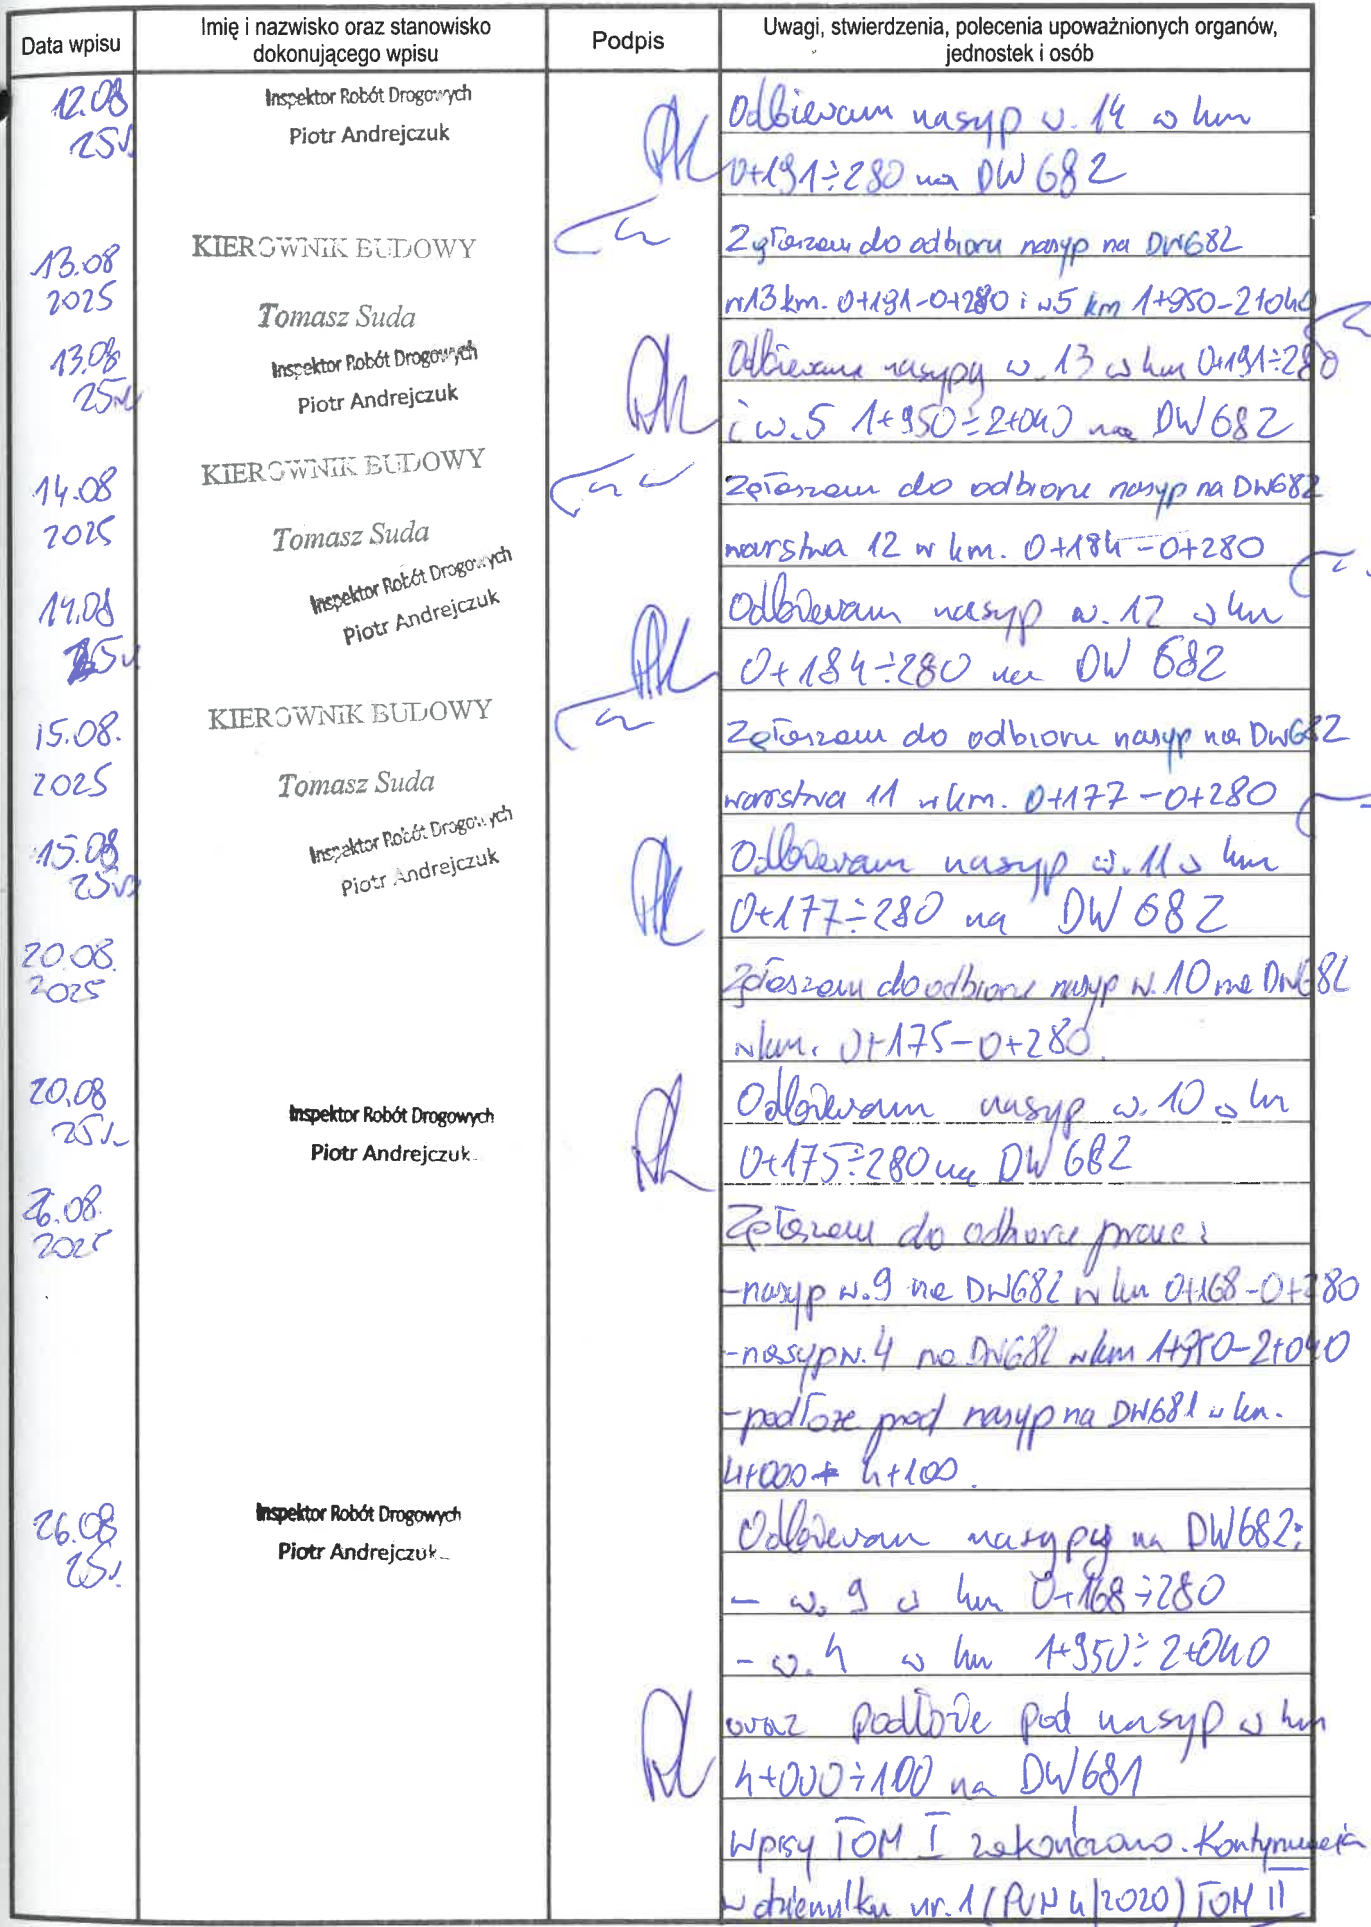 Data wpisu
Imię i nazwisko oraz stanowisko
dokonującego wpisu
Podpis
Uwagi, stwierdzenia, polecenia upoważnionych organów,
jednostek i osób
12.08
25r.
Inspektor Robót Drogowych
Piotr Andrejczuk
Odbieram nasyp w. 14 w km
0+191÷280 na DW 682
13.08
2025
KIEROWNIK BUDOWY
Tomasz Suda
Zgłaszam do odbioru nasyp na DW682
w13 km. 0+191-0+280 i w5 km 1+950-2+040
13.08
25r.
Inspektor Robót Drogowych
Piotr Andrejczuk
Odbieram nasypy w. 13 w km 0+191÷280
i w.5 1+950÷2+040 na DW 682
14.08
2025
KIEROWNIK BUDOWY
Tomasz Suda
Zgłaszam do odbioru nasyp na DW682
warstwa 12 w km. 0+184-0+280
14.08
25r.
Inspektor Robót Drogowych
Piotr Andrejczuk
Odbieram nasyp w. 12 w km
0+184÷280 na DW 682
15.08.
2025
KIEROWNIK BUDOWY
Tomasz Suda
Zgłaszam do odbioru nasyp na DW682
warstwa 11 w km. 0+177-0+280
15.08
25r.
Inspektor Robót Drogowych
Piotr Andrejczuk
Odbieram nasyp w. 11 w km
0+177÷280 na DW 682
20.08.
2025
Zgłaszam do odbioru nasyp w. 10 na DW682
w km. 0+175-0+280.
20.08
25r.
Inspektor Robót Drogowych
Piotr Andrejczuk
Odbieram nasyp w. 10 w km
0+175÷280 na DW 682
26.08.
2025
Zgłaszam do odbioru prace:
-nasyp w.9 na DW682 w km 0+168-0+280
-nasyp w. 4 na DW682 w km 1+950-2+040
-podłoże pod nasyp na DW681 w km.
4+000÷4+100.
26.08
25r.
Inspektor Robót Drogowych
Piotr Andrejczuk
Odbieram nasypy na DW682:
- w. 9 w km 0+168÷280
- w. 4 w km 1+950÷2+040
oraz podłoże pod nasyp w km
4+000÷100 na DW681
Wpisy TOM I zakończono. Kontynuacja
w dzienniku nr. 1 (PUN 4/2020) TOM II